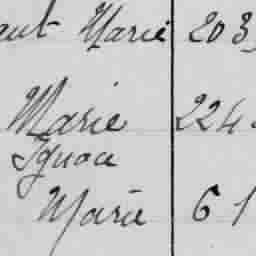 aut Marie 203
Marie 224
Ignace
Marie 61